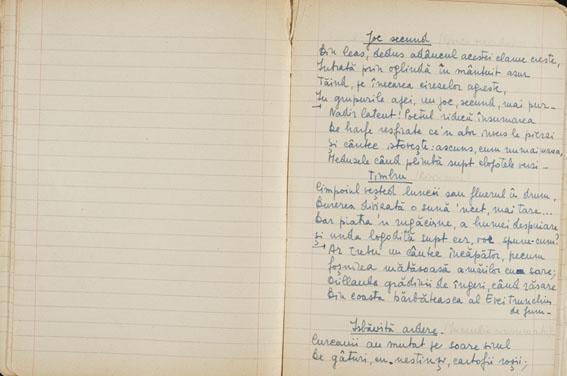 Joc secund
Din ceas, dedus adâncul acestei calme creste,
Intrată prin oglindă în mântuit azur
Tăind, pe înecarea cirezilor agreste,
În grupurile apei, un joc, secund, mai pur –
Nadir latent! Poetul ridică însumarea
De harfe resfirate ce'n sbor invers le pierzi
Și cântec istovește: ascuns, cum numai marea,
Meduzele când plimbă supt clopotele verzi –
Timbru
Cimpoiul veșted luncii sau fluerul în drum,
Durerea divizată o sună 'ncet, mai tare...
Dar piatra 'n rugăciune, a humei despuiare
Și unda logodită supt cer, vor spune – cum?
Ar trebui un cântec încăpător, precum
Foșnirea mătăsoasă a mărilor cu sare;
Ori lauda grădinii de îngeri, când răsare
Din coasta bărbătească al Evei trunchiu
de fum –
Isbăvită ardere
Curcanii au mutat pe soare sirul
De gâturi, cu nestinși, cartofii roșii;